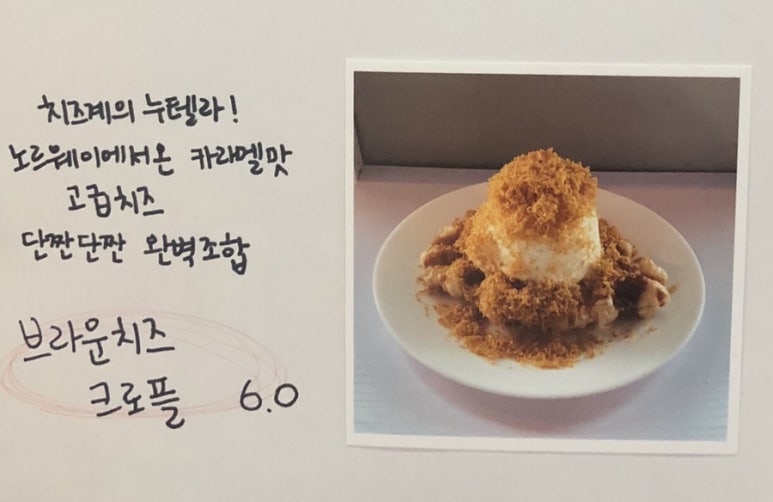 치즈계의 누텔라!
노르웨이에서온 카라멜맛
고급치즈
단짠단짠 완벽조합
브라운치즈
크로플 6.0